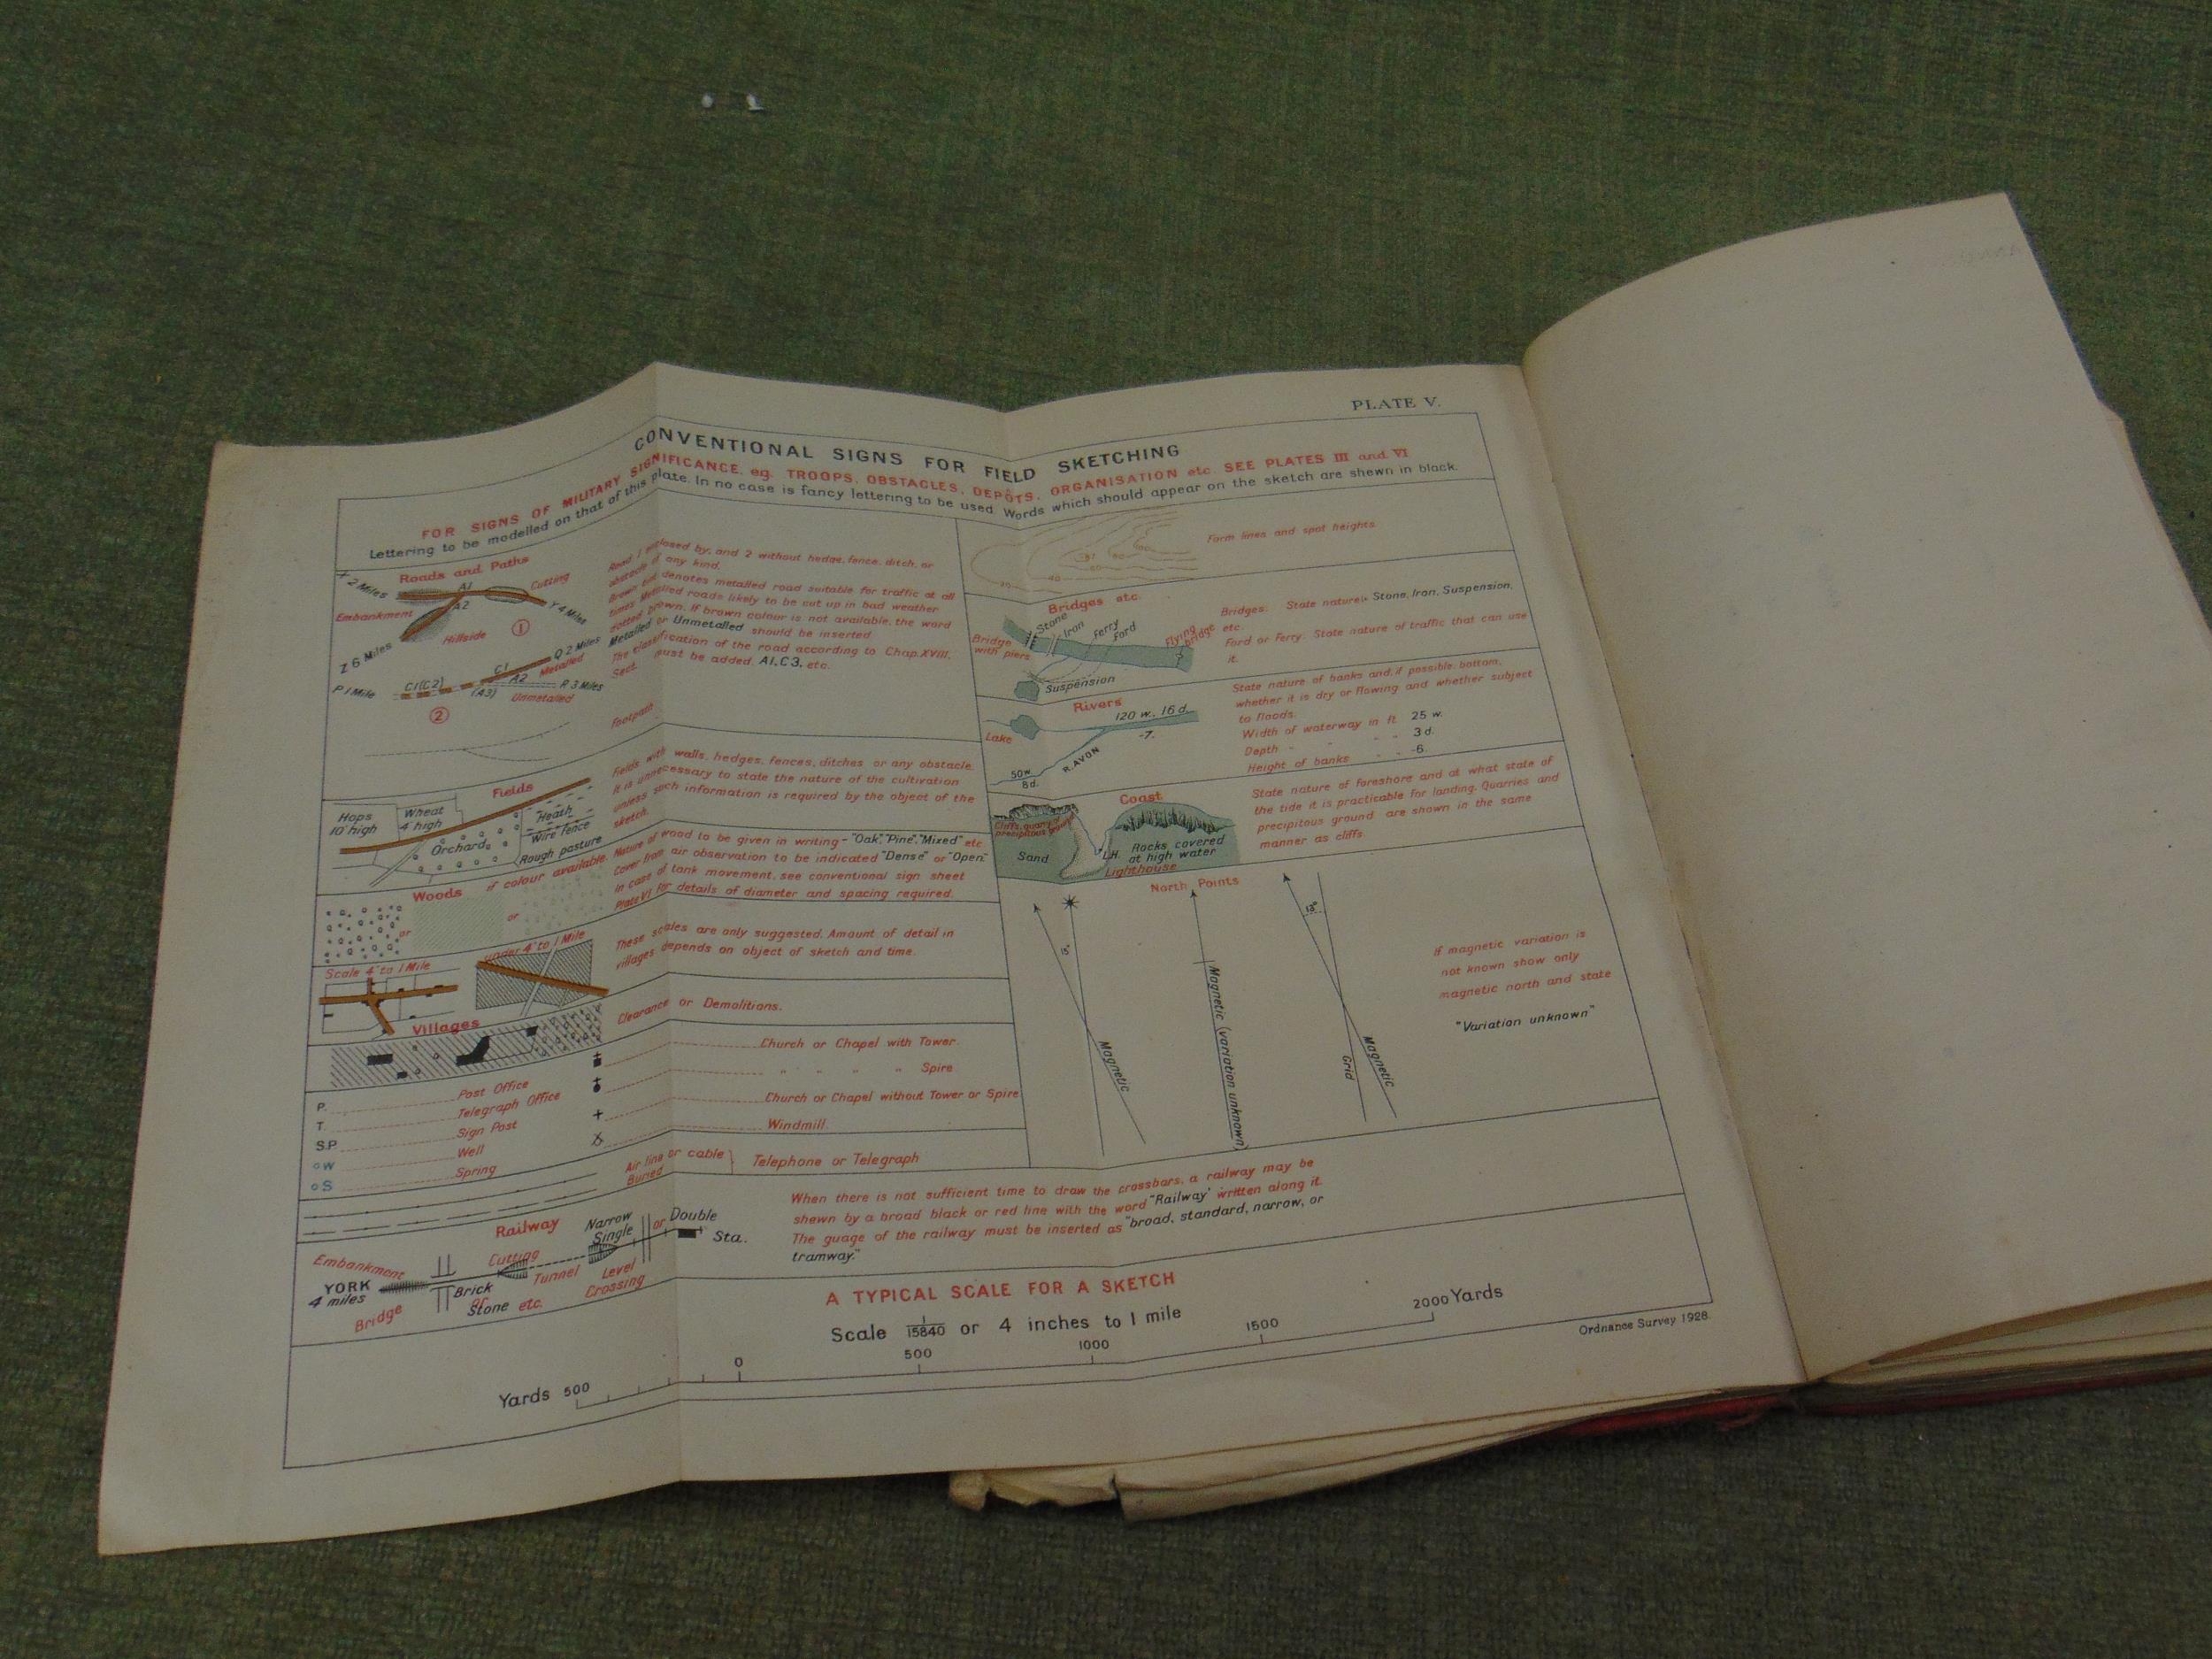 PLATE V.
CONVENTIONAL SIGNS FOR FIELD SKETCHING
FOR SIGNS OF MILITARY SIGNIFICANCE, eg. TROOPS, OBSTACLES, DEPÔTS, ORGANISATION etc. SEE PLATES III and VI
Lettering to be modelled on that of this plate. In no case is fancy lettering to be used. Words which should appear on the sketch are shewn in black.
Roads and Paths
X 2 Miles
A1
Cutting
Embankment
A2
Y 4 Miles
Hillside
1
Z 6 Miles
Q 2 Miles
C1
Metalled
P 1 Mile
C1(C2)
A2
R 3 Miles
(A3)
Unmetalled
2
Footpath
Road 1 enclosed by, and 2 without hedge, fence, ditch, or
obstacle of any kind.
Brown tint denotes metalled road suitable for traffic at all
times. Metalled roads likely to be cut up in bad weather
dotted brown. If brown colour is not available, the word
Metalled or Unmetalled should be inserted
The classification of the road according to Chap. XVIII,
Sect. must be added. A1, C3, etc.
Fields
Hops
10' high
Wheat
4' high
Heath
Wire fence
Orchard
Rough pasture
Fields with walls, hedges, fences, ditches or any obstacle.
It is unnecessary to state the nature of the cultivation
unless such information is required by the object of the
sketch.
Woods
if colour available.
or
or
Nature of wood to be given in writing - "Oak", "Pine", "Mixed" etc
Cover from air observation to be indicated "Dense" or "Open"
In case of tank movement, see conventional sign sheet
Plate VI for details of diameter and spacing required.
Scale 4" to 1 Mile
under 4" to 1 Mile
Villages
These scales are only suggested. Amount of detail in
villages depends on object of sketch and time.
Clearance or Demolitions.
P. Post Office
T. Telegraph Office
S.P. Sign Post
W Well
S Spring
Church or Chapel with Tower.
" " " " Spire
Church or Chapel without Tower or Spire
Windmill.
Air line or cable
Buried
Telephone or Telegraph
Railway
Embankment
YORK
4 miles
Bridge
Brick
or
Stone etc.
Cutting
Tunnel
Narrow
Single
or
Double
Level
Crossing
Sta.
When there is not sufficient time to draw the crossbars, a railway may be
shewn by a broad black or red line with the word "Railway" written along it.
The guage of the railway must be inserted as "broad, standard, narrow, or
tramway."
Form lines and spot heights
Bridges etc.
Bridge
with piers
Stone
Iron
Ferry
Ford
Flying
bridge
Suspension
Bridges: State nature:- Stone, Iron, Suspension,
etc.
Ford or Ferry. State nature of traffic that can use
it.
Rivers
Lake
120 w. 16 d.
-7.
R. AVON
50w
8d.
State nature of banks and, if possible, bottom,
whether it is dry or flowing and whether subject
to floods.
Width of waterway in ft. 25 w.
Depth " " " " 3 d.
Height of banks " " -6.
Coast
Cliffs, quarry
precipitous ground
Sand
L.H.
Lighthouse
Rocks covered
at high water
State nature of foreshore and at what state of
the tide it is practicable for landing. Quarries and
precipitous ground are shown in the same
manner as cliffs.
North Points
15°
Magnetic
Magnetic (variation unknown)
13°
Grid
Magnetic
If magnetic variation is
not known show only
magnetic north and state
"Variation unknown"
A TYPICAL SCALE FOR A SKETCH
Scale 1/15840 or 4 inches to 1 mile
Yards 500 0 500 1000 1500 2000 Yards
Ordnance Survey 1928.